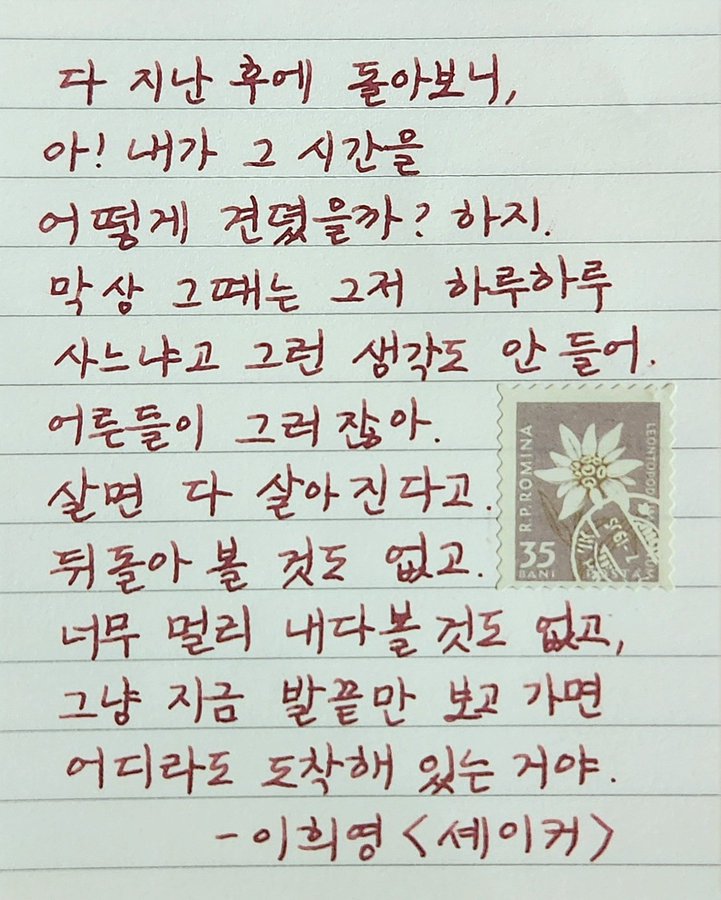 다 지난 후에 돌아보니,
아! 내가 그 시간을
어떻게 견뎠을까? 하지.
막상 그때는 그저 하루하루
사느냐고 그런 생각도 안 들어.
어른들이 그러잖아.
살면 다 살아진다고.
뒤돌아 볼 것도 없고.
너무 멀리 내다볼 것도 없고,
그냥 지금 발끝만 보고 가면
어디라도 도착해 있는 거야.
- 이희영 <셰이커>
R.P.ROMINA
35
BANI
LEONTOPOD